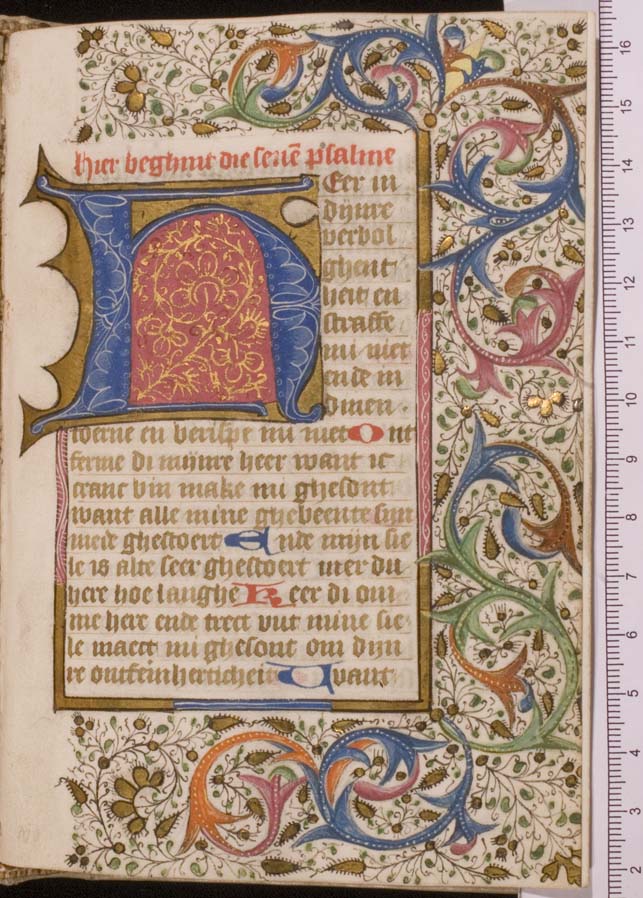 hier beghint die seuē psalme
HEer in
dijnre
verbol
ghent
heit en
straffe
mi niet
ende in
dinen
toerne en berispe mi niet Ont
ferme di mijnre heer want ic
cranc bin make mi ghesont
want alle mine ghebeente sijn
mede ghestoert Ende mijn sie
le is alte seer ghestoert mer du
here hoe langhe Keer di om
me here ende trect vut mine sie
le maect mi ghesont om dijn
re ontfermherticheit Want
16
15
14
13
12
11
10
9
8
7
6
5
4
3
2